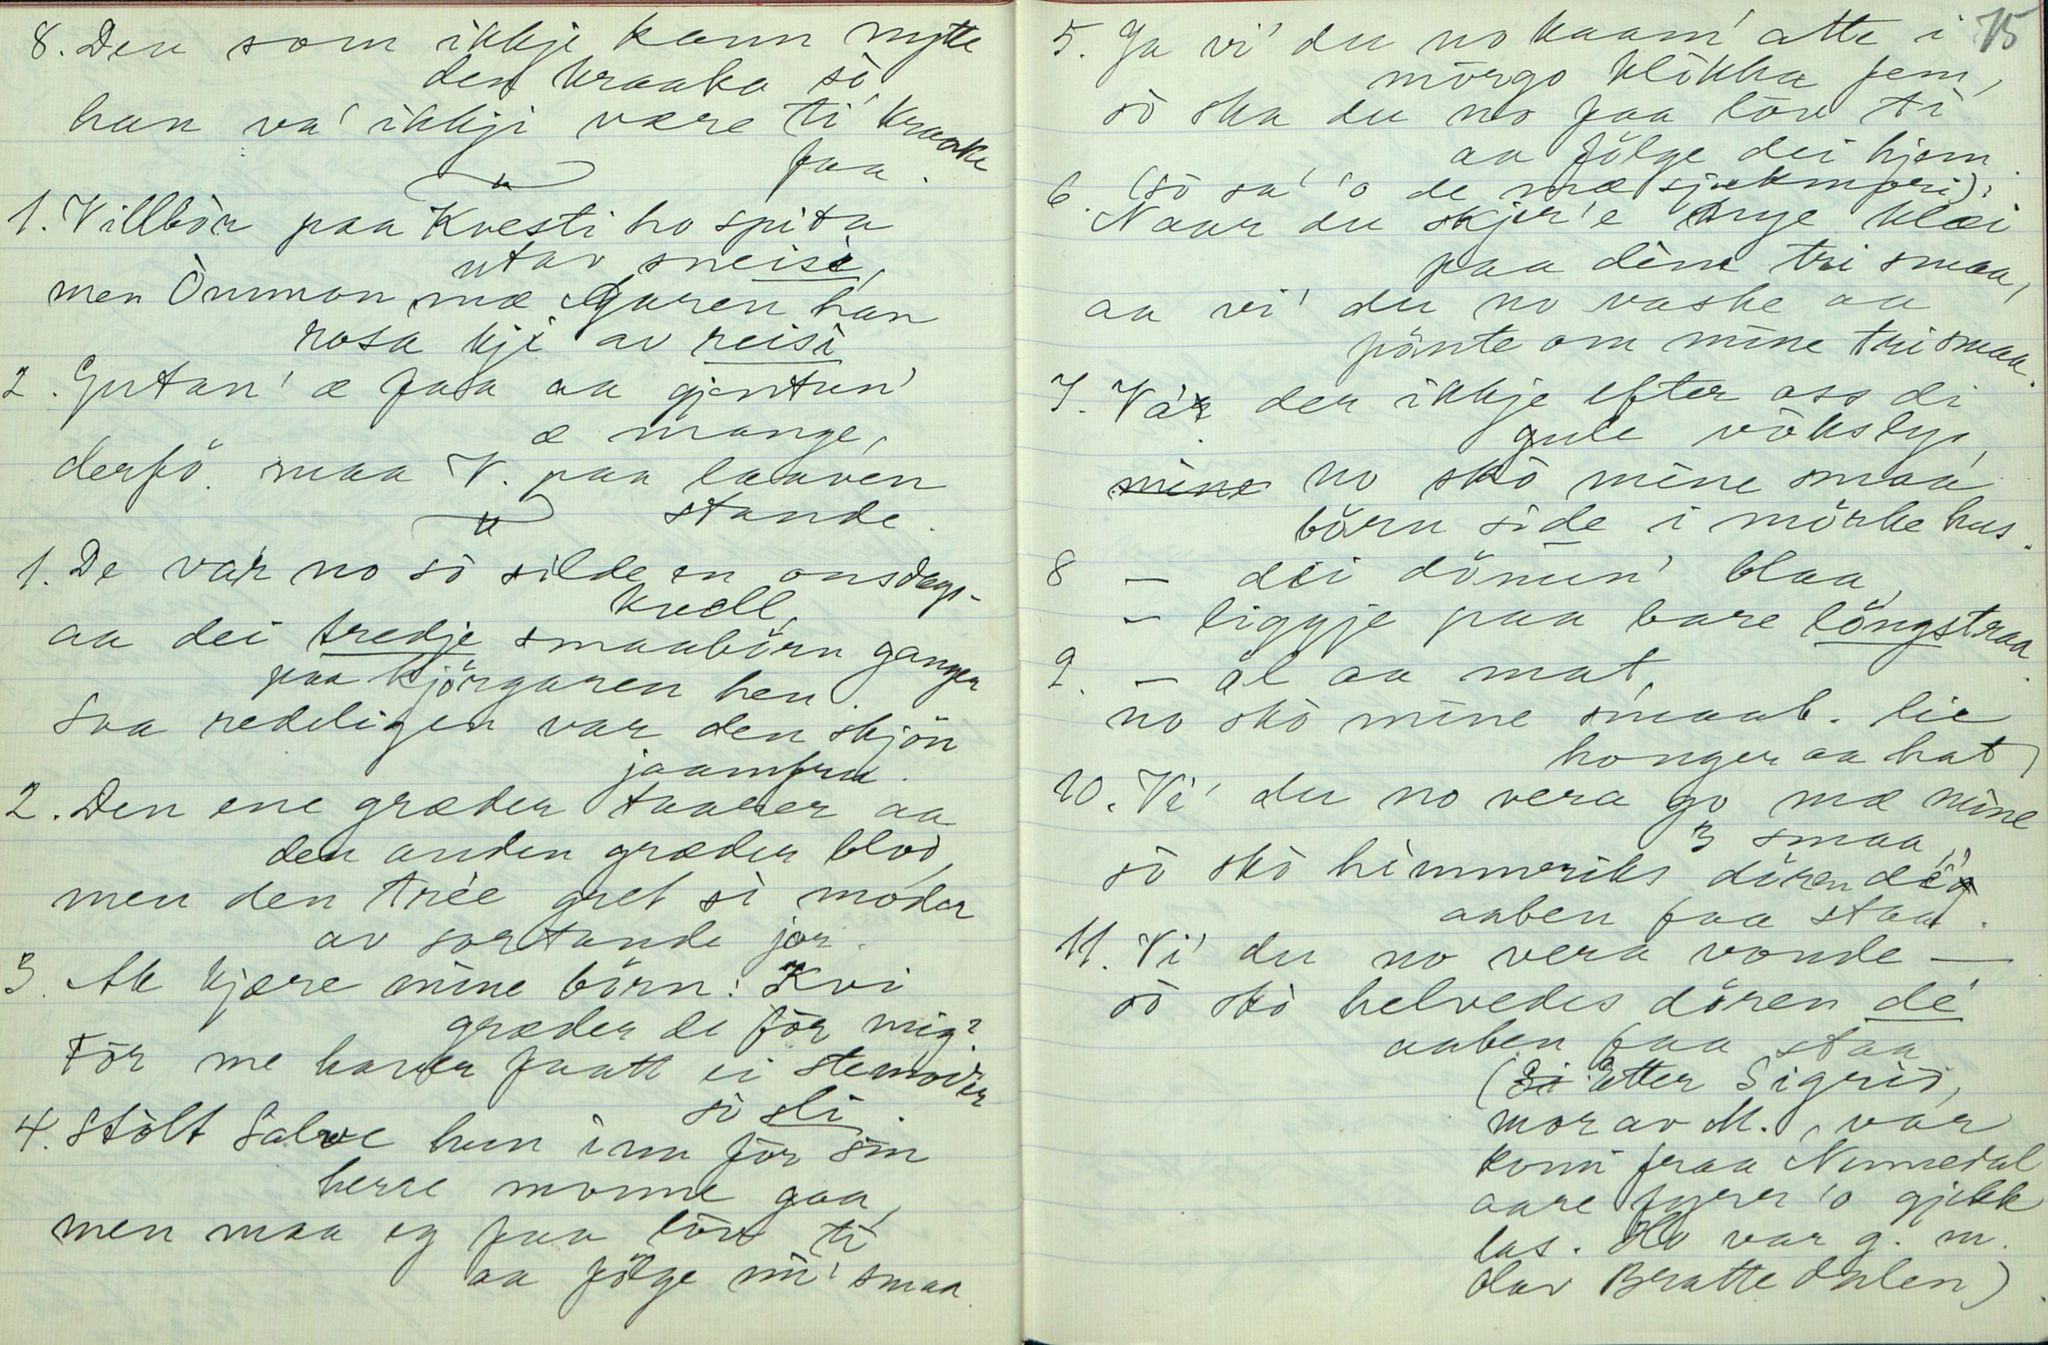 8. Den som ikkje kann nytte
den kraaka sò,
han va' ikkji være ti' kraake
faa.
1. Villbòr paa Kvesti ho spita
utav sneisi,
men Òmmon mæ Garen han
rosa kji av reisi
2. Gutan' æ faa aa gjentun'
æ mange,
derfö. maa V. paa laaven
stande.
1. De var no sò silde en onsdags-
kvell,
aa dei tredje smaabörn ganger
paa kjörgaren hen.
Saa redeligen var den skjön
jaamfru.
2. Den ene græder taarer aa
den anden græder blod,
men den trée gret si moder
av sortande jor.
3. Ak kjære mine börn: Kvi
græder de för mig?
För me haver faatt ei stemoder
sò sli.
4. Stòlt Salve hun inn för sin
herre monne gaa,
men maa eg faa lòv ti
aa fölge mi' smaa.
5. Ja vi' du no kaam' atte i
mòrgo klòkka fem,
sò ska du no faa lòv ti
aa fölge dei hjem.
6. (sò sa' 'o de mæ sjukmori):
Naar du skjer'e nye klæi
paa dine tri smaa,
aa vi' du no vaske aa
pönte om mine tri smaa.
7. Vár der ikkje efter oss di
gule vòkslys,
no skò mine smaa
börn side i mörke hus.
8 — dei dönun' blaa,
– liggje paa bare löngstraa.
9. — öl aa mat,
no skò mine smaab. lie
honger aa hat,
10. Vi' du no vera go mæ mine
3 smaa,
sò skò himmeriks dören dé
aaben faa staa.
11. Vi' du no vera vonde —
sò skò helvedes dören dé
aaben faa staa
(Etter Sigrid,
mor av M., var
komi fraa Numedal
aare fyrer 'o gjekk
las. Ho var g. m.
Olav Brattedalen)
75